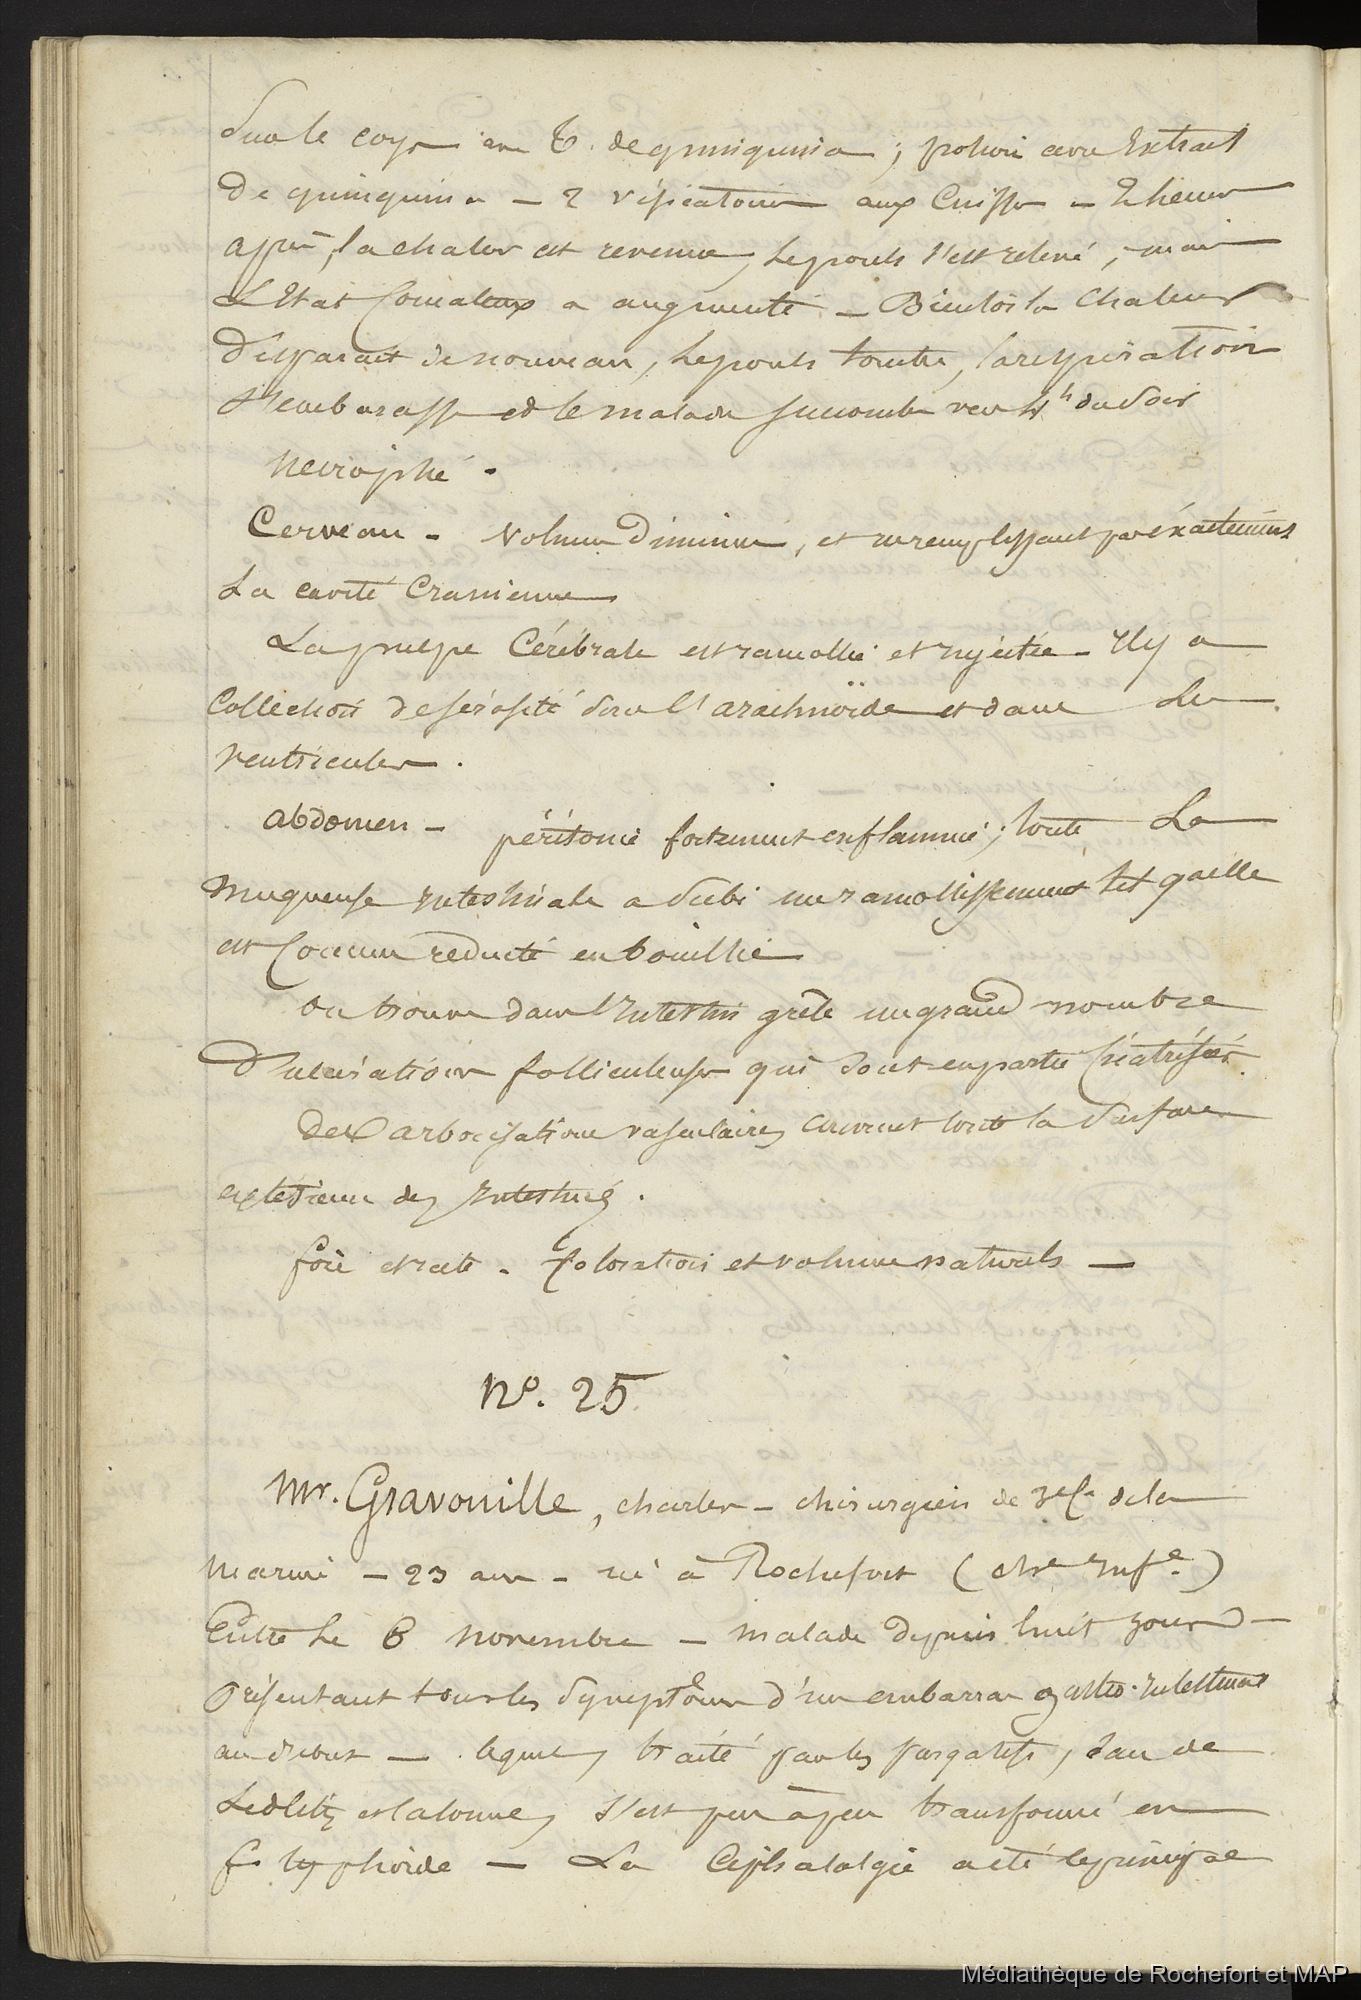 sur le corps au T. de quinquina ; potion avec Extrait
De quinquina — 2 vésicatoires aux Cuisses — 2 heures
après, la chaleur est revenue, le pouls s'est relevé, mais
L'Etat Comateux a augmenté — Bientôt la Chaleur
Disparait de nouveau, le pouls tombe, la respiration
s'embarasse et le malade succombe vers 4h du soir
Necropsie.
Cerveau — volume Diminué, et ne remplissant pas éxactement
La cavité Cranienne
La pulpe Cérébrale est ramollie et injectée — Il y a
Collection de sérosité sous l'arachnoïde et dans les
ventricules.
abdomen — péritoine fortement enflammé ; toute La
muqueuse intestinale a subi un ramollissement tel qu'elle
est Comme reduite en bouillie
On trouve dans l'Intestin grêle un grand nombre
D'ulcérations folliculeuses qui sont en partie Cicatrisées.
Des arborisations vasculaires couvrent toute la surface
extérieure des Intestins.
foie et rate — Coloration et volume naturels —
No. 25
Mr. Gravouille, charles — chirurgien de 3e Cl. de la
Marine — 23 ans — né à Rochefort (chte Infe.)
Entré le 6 novembre — malade depuis huit jours —
Présentant tous les symptômes d'un embarras gastro-intestinal
au début — lequel, traité par les purgatifs, l'eau de
Sedlitz et la tonne, s'est peu à peu transformé en
f. typhoïde — La Céphalalgie a été le principal
Médiathèque de Rochefort et MAP